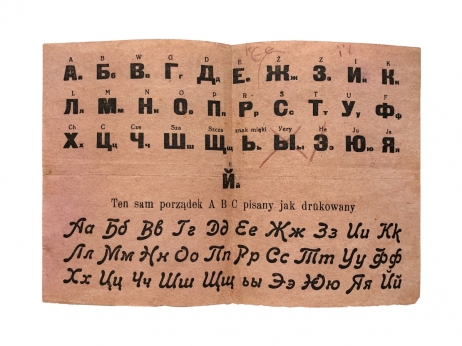 A B W G D E Z Z I K
Аа Бб Вв Гг Дд Ее Жж Зз Ии Кк
L M N O P R S T U F
Лл Мм Нн Оо Пп Рр Сс Тт Уу Фф
Ch Cz Sza Szcza znak mięki Yery He Ju Ja
Хх Цц Чч Шш Щщ ь Ы Ээ Юю Яя
Йй
Ten sam porządek A B C pisany jak drukowany
Аа Бб Вв Гг Дд Ее Жж Зз Ии Кк
Лл Мм Нн Оо Пп Рр Сс Тт Уу Фф
Хх Цц Чч Шш Щщ ьы Ээ Юю Яя Йй